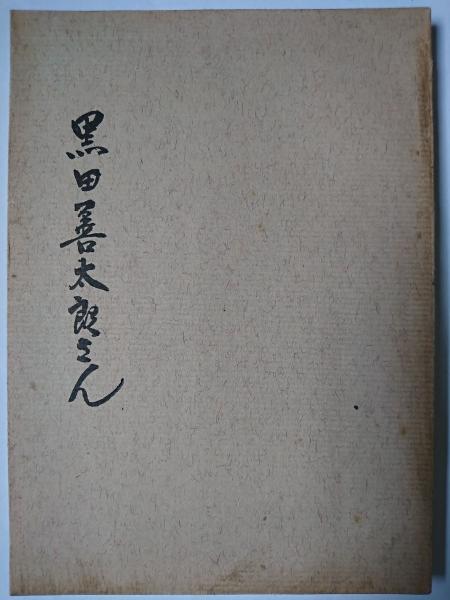 黒田善太郎さん